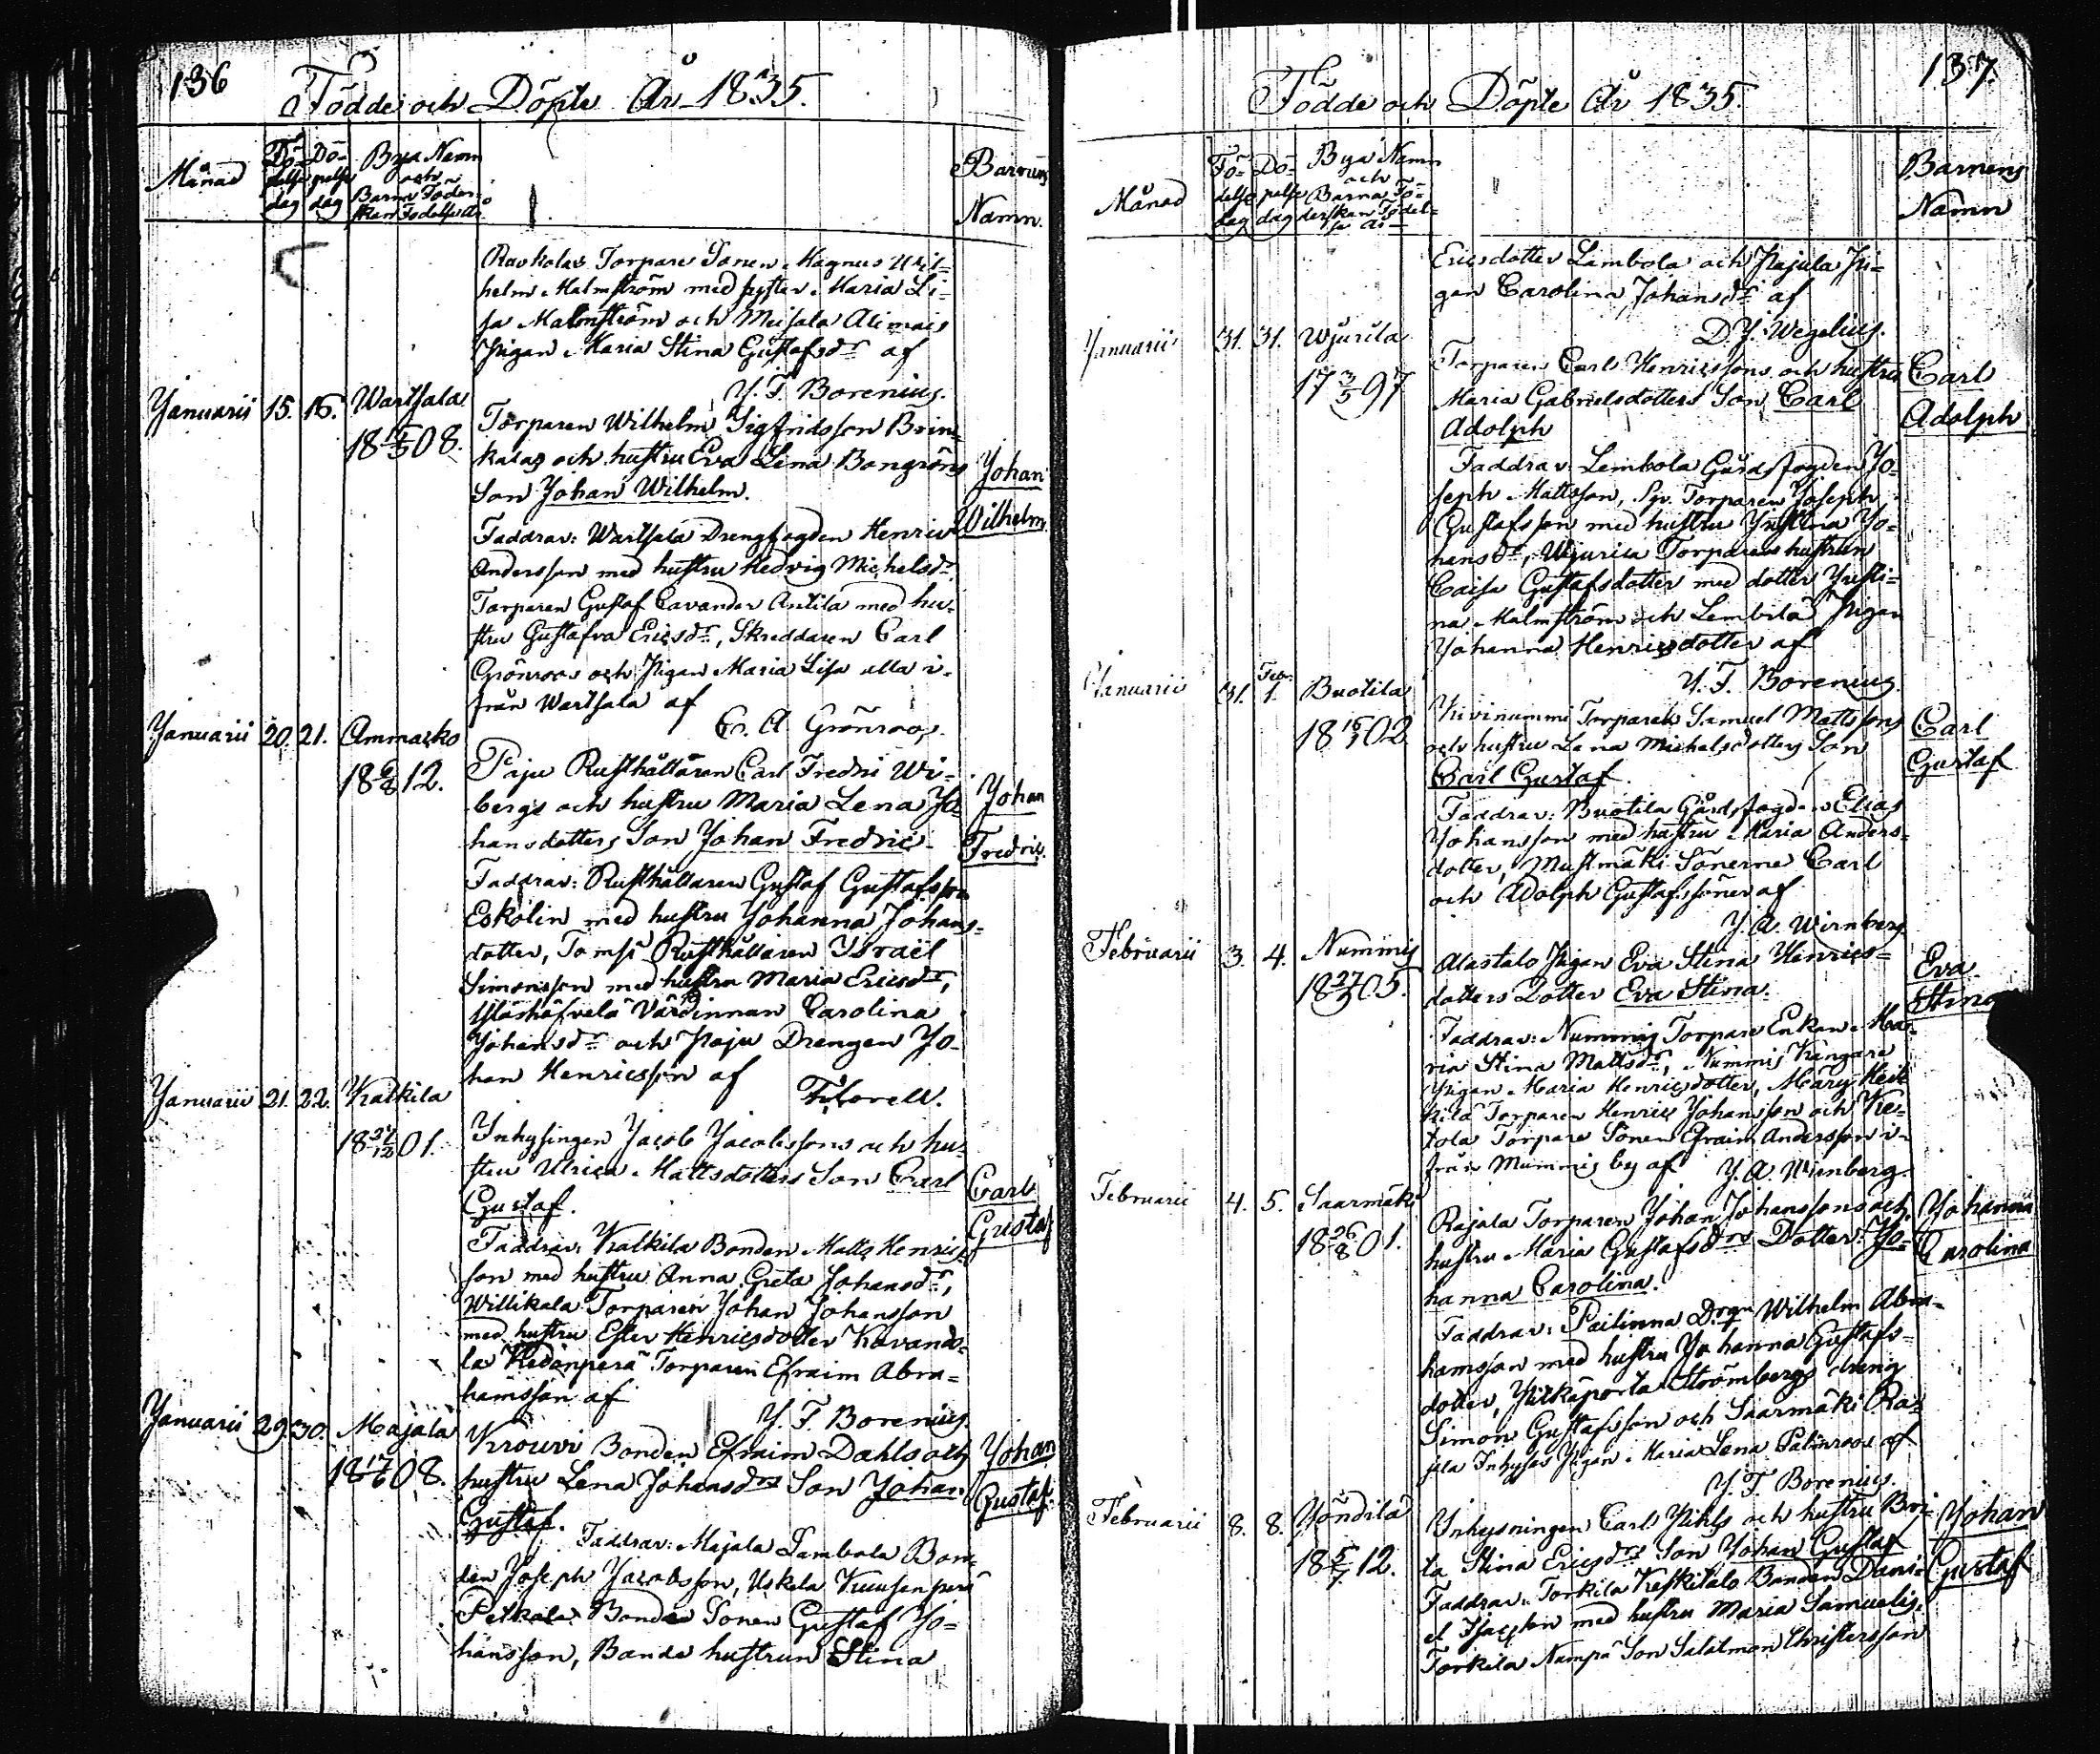 136
Födde och Döpte År 1835.
Månad
Fö- delse dag
Dö- pelse dag
Bya Namn och Barna Föder- skan Födelse År
Barnens Namn.
Torpare Sonen Magnus Wil-
helm Malmström med syster Maria Li-
sa Malmström och
Pigan Maria Stina Gustafsdr af
J. F. Borenius.
Januarii 15. 16. Wartsala
18 15/5 08.
Torparen Wilhelm Sigfridsson Brin-
kalas och hustru Eva Lena
Son Johan Wilhelm.
Johan
Wilhelm
Faddrar: Wartsala Drengfogden Henric
Andersson med hustru Hedvig Michelsdr
Torparen Gustaf Cavander Antila med hu-
stru Gustafva Ericsdr, Skreddaren Carl
Grönroos och Pigan Maria Lisa alla i-
från Wartsala af
Er. A. Grönroos.
Januarii 20. 21. Ammasko
12.
Paju Rusthållaren Carl Fredric Wi-
bergs och hustru Maria Lena Jo-
hansdotters Son Johan Fredric
Johan
Fredric
Faddrar: Rusthållaren Gustaf Gustafsson
Eskolin med hustru Johanna Johans-
dotter, Tomsi Rusthållaren Israël
Simonsson med hustru Maria Ericsdr,
Värdinnan Carolina
Johansdr och Paju Drengen Jo-
han Henricsson af
Januarii 21. 22. Kalkila
01.
Inhysingen Jacob Jacobssons och hu-
stru Ulrica Mattsdotters Son Carl
Gustaf.
Carl
Gustaf
Faddrar: Kalkila Bonden Matts Henrics-
son med hustru Anna Greta Johansdr,
Willikala Torparen Johan Johansson
med hustru Ester Henricsdotter
Torparen Efraim Abra-
hamsson af
J. F. Borenius
Januarii 29. 30. Majala
18 17/6 08.
Krouvi Bonden Efraim Dahls och
hustru Lena Johansdrs Son Johan
Gustaf.
Johan
Gustaf
Faddrar: Majala Lambola Bon-
den Joseph Jacobsson, Uskela
Bonde Sonen Gustaf Jo-
hansson, Bonde hustrun Stina
137.
Födde och Döpte År 1835.
Månad
Fö- delse dag
Dö- pelse dag
Bya Namn och Barna Fö- derskan Födel- se År
Barnens Namn
Ericsdotter Lambola och Pajula Pi-
gan Carolina Johansdr af
D. J. Wegelius.
Januarii 31. 31. Wjurila
17 3/5 97
Torparen Carl Henricssons och hustru
Maria Gabrielsdotters Son Carl
Adolph
Carl
Adolph
Faddrar: Lembola Gårdsfogden Jo-
seph Mattsson, Torparen Joseph
Gustafsson med hustru Justina Jo-
hansdr, Wjurila Torpare hustrun
Caisa Gustafsdotter med dotter Justi-
na Malmström och Lembila Pigan
Johanna Henricsdotter af
J. F. Borenius.
Januarii 31. Febr. 1. Buotila
02
Kivinummi Torparen Samuel Mattssons
och hustru Lena Michelsdotters Son
Carl Gustaf.
Carl
Gustaf
Faddrar: Buotila Gårdsfogden Elias
Johansson med hustru Maria Anders-
dotter, Mustmäki Sönerne Carl
och Adolph Gustafssöner af
J. A. Wirnberg
Februarii 3. 4. Nummis
05.
Alastalo Pigan Eva Stina Henrics-
dotters Dotter Eva Stina.
Eva
Stina
Faddrar: Nummis Torpare Enkan Ma-
ria Stina Mattsdr, Nummis Kangare
Pigan Maria Henricsdotter, Märy Heik
kilä Torparen Henric Johansson och Ke-
tola Torpare Sonen Efraim Andersson i-
från Nummis by af J. A. Wirnberg.
Februarii 4. 5. Saarmäki
18 26/8 01.
Rajala Torparen Johan Johanssons och
hustru Maria Gustafsdrs Dotter Jo-
hanna Carolina.
Johanna
Carolina
Faddrar: Pailinna Drgn Wilhelm Abra-
hamsson med hustru Johanna Gustafs-
dotter, Pitkäporta Strömbergs dreng
Simon Gustafsson och Saarmäki Ra-
jala Inhyses Pigan Maria Lena Palmroos af
J. F. Borenius.
Februarii 8. 8. Jöndilä
12.
Inhysningen Carl och hustru Bri-
ta Stina Ericsdrs Son Johan Gustaf
Johan
Gustaf
Faddrar: Torkila Keskitalo Bonden Dani-
el Isacsson med hustru Maria Samuelis.
Torkila Nampa Son Salolmon Christersson